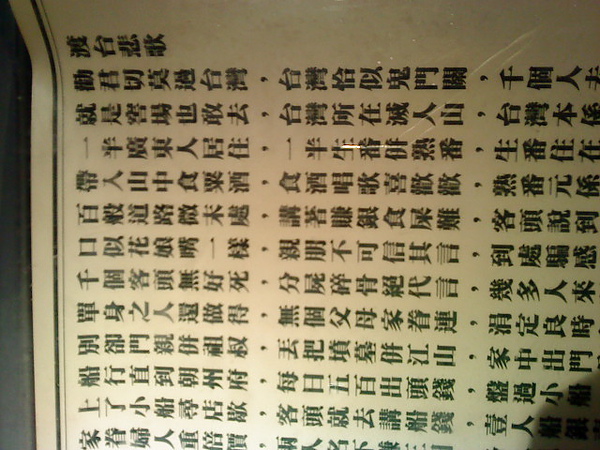 渡台悲歌
勸君切莫過台灣，台灣恰似鬼門關，千個人去
就是窖場也敢去，台灣所在滅人山，台灣本係
一半廣東人居住，一半生番併熟番，生番住在
帶入山中食粟酒，食酒唱歌喜歡歡，熟番元係
百般道路微末處，講著賺銀食屎難，客頭說到
口似花娘嘴一樣，親朋不可信其言，到處騙感
千個客頭無好死，分屍碎骨絕代言，幾多人來
單身之人還做得，無個父母家眷連，涓定良時
別卻門親併祖叔，丟把墳墓併江山，家中出門
船行直到朝州府，每日五百出頭錢，盤過小船
上了小船尋店歇，客頭就去講船錢，壹人船銀
家眷婦人重倍價，兩人名下賺